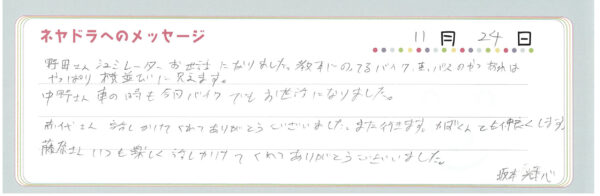 ネヤドラへのメッセージ 11月 24日
野田さん シュミレーター お世話になりました。教本にのってるバイク、車、バスのやつ あれは
やっぱり 横並びに見えます。
中野さん 車の時も今回バイクでもお世話になりました。
赤代さん 話しかけてくれてありがとうございました。また行きます。かばくんとも仲良くします。
藤原さん いつも楽しく話しかけてくれてありがとうございました。
坂本